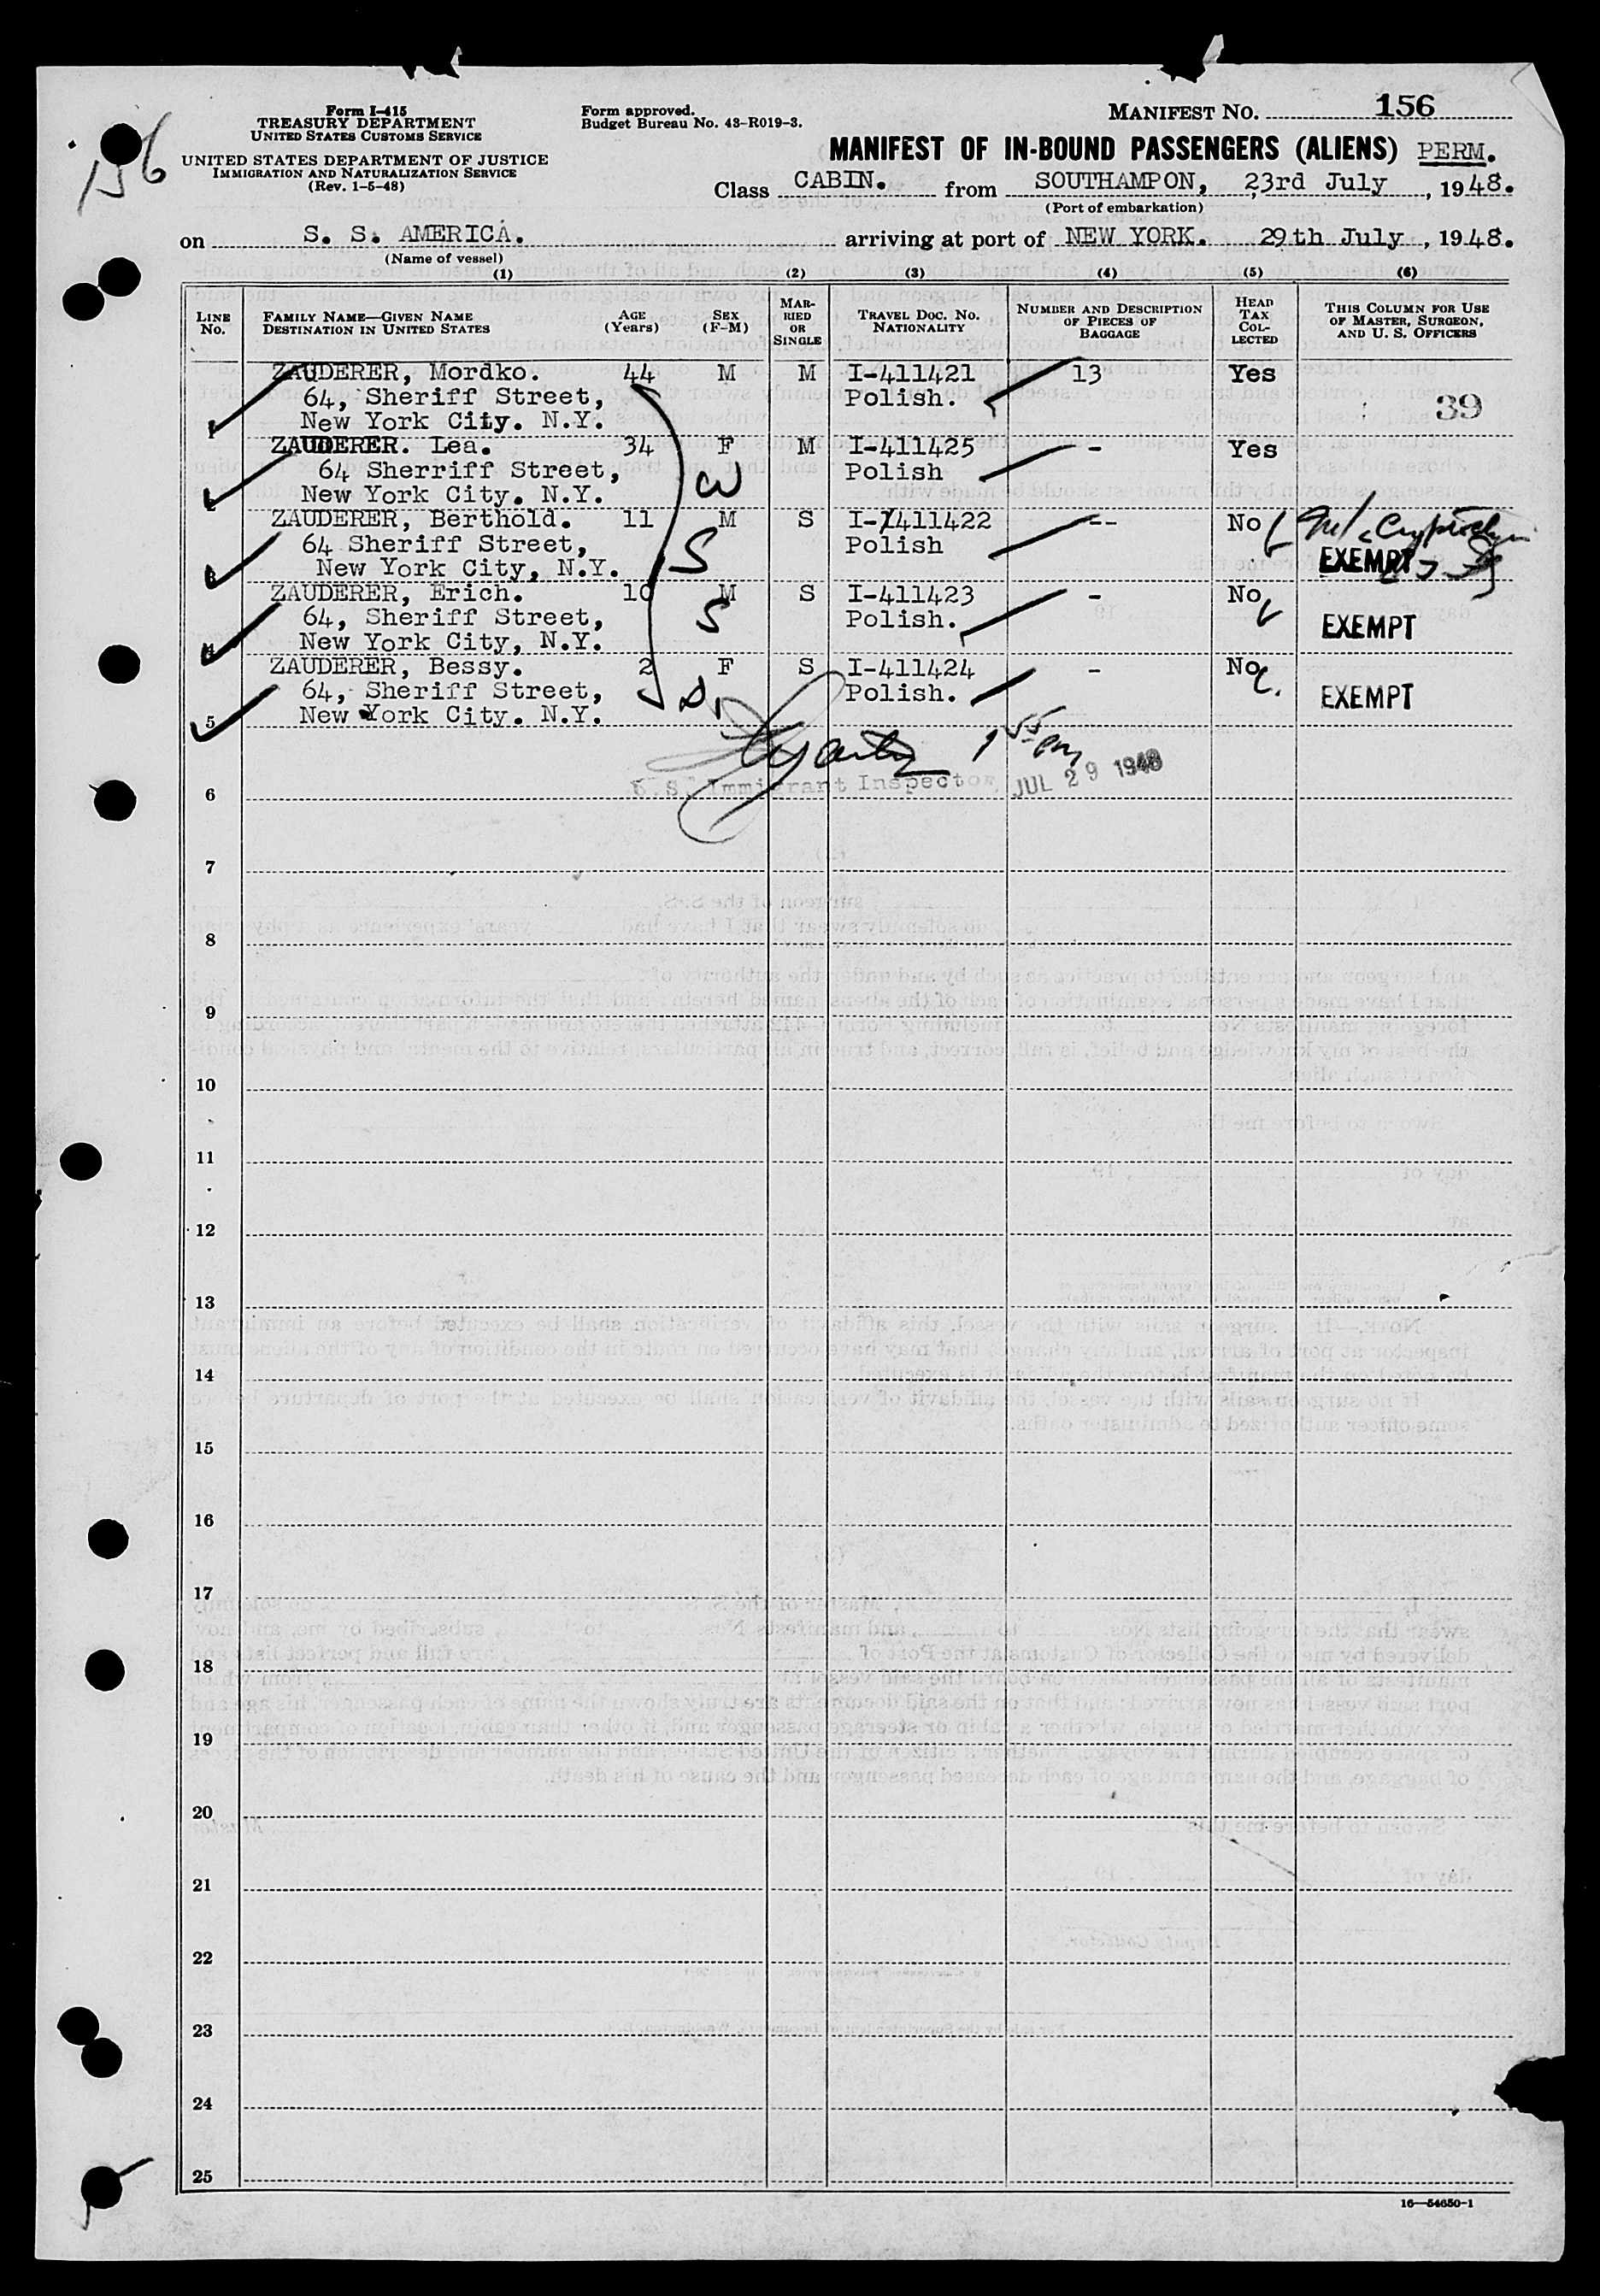 Form I-415
TREASURY DEPARTMENT
UNITED STATES CUSTOMS SERVICE
UNITED STATES DEPARTMENT OF JUSTICE
IMMIGRATION AND NATURALIZATION SERVICE
(Rev. 1-5-48)
156
Form approved.
Budget Bureau No. 43-R019-3.
MANIFEST NO. 156
MANIFEST OF IN-BOUND PASSENGERS (ALIENS) PERM.
Class CABIN. from SOUTHAMPON, 23rd July, 1948.
(Port of embarkation)
on S. S. AMERICA. arriving at port of NEW YORK. 29th July, 1948.
(Name of vessel)
(1) (2) (3) (4) (5) (6)
LINE No. FAMILY NAME—GIVEN NAME DESTINATION IN UNITED STATES AGE (Years) SEX (F-M) MARRIED OR SINGLE TRAVEL DOC. NO. NATIONALITY NUMBER AND DESCRIPTION OF PIECES OF BAGGAGE HEAD TAX COLLECTED THIS COLUMN FOR USE OF MASTER, SURGEON, AND U. S. OFFICERS
ZAUDERER, Mordko. 44 M M I-411421 13 Yes
64, Sheriff Street, Polish. 39
1 New York City. N.Y.
ZAUDERER. Lea. 34 F M I-411425 - Yes
64 Sherriff Street, Polish
2 New York City. N.Y. W
ZAUDERER, Berthold. 11 M S I-411422 -- No
64 Sheriff Street, S Polish EXEMPT
3 New York City, N.Y.
ZAUDERER, Erich. 10 M S I-411423 - No
64, Sheriff Street, S Polish. EXEMPT
4 New York City, N.Y.
ZAUDERER, Bessy. 2 F S I-411424 - No
64, Sheriff Street, D. Polish. EXEMPT
5 New York City. N.Y.
1 55 pm
U.S. Immigrant Inspector JUL 29 1948
6
7
8
9
10
11
12
13
14
15
16
17
18
19
20
21
22
23
24
25
16—54650-1